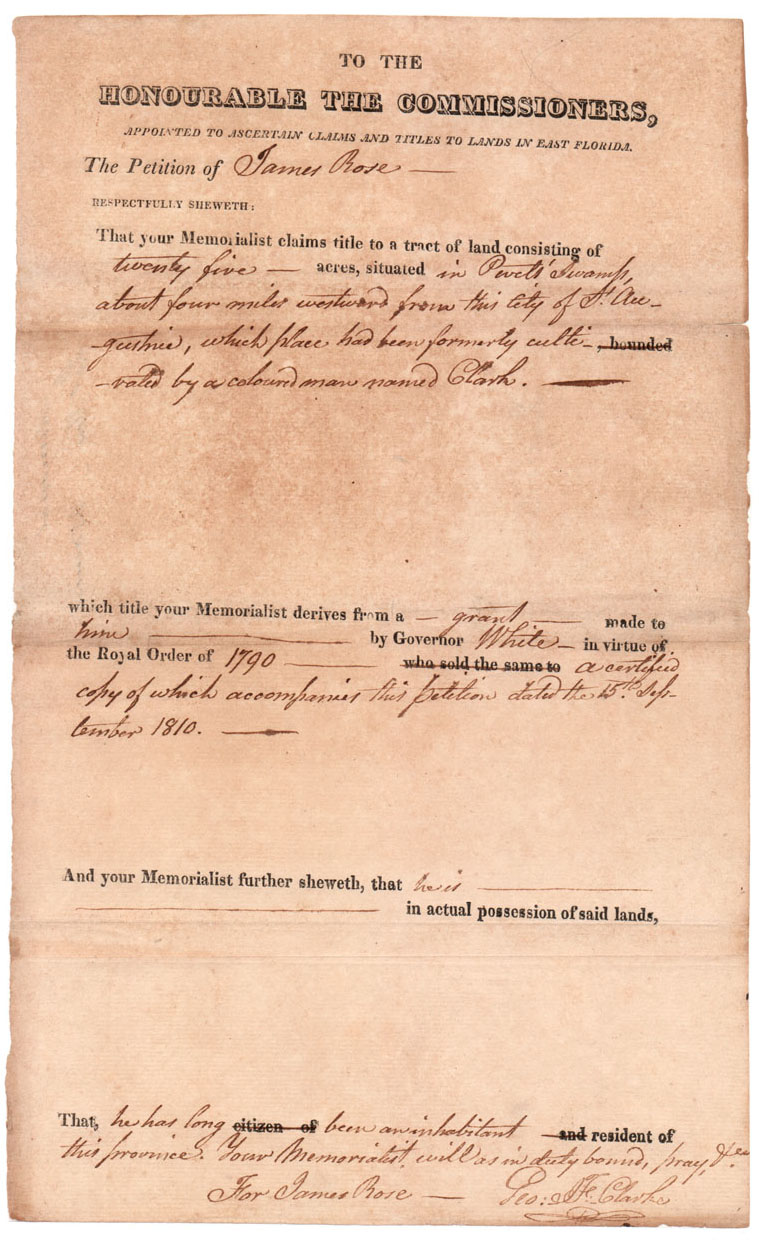 TO THE
HONOURABLE THE COMMISSIONERS,
APPOINTED TO ASCERTAIN CLAIMS AND TITLES TO LANDS IN EAST FLORIDA.
The Petition of James Rose —
RESPECTFULLY SHEWETH:
That your Memorialist claims title to a tract of land consisting of
twenty five — acres, situated in Pevets' Swamp,
about four miles westward from this City of St. Au-
-gustine, which place had been formerly culti-, bounded
-vated by a coloured man named Clark. —
which title your Memorialist derives from a — grant — made to
him — by Governor White — in virtue of
the Royal Order of 1790 — who sold the same to a certified
copy of which accompanies this petition dated the 15th. Sep-
tember 1810. —
And your Memorialist further sheweth, that he is —
— in actual possession of said lands,
That, he has long citizen of been an inhabitant — and resident of
this province. Your Memorialist, will as in duty bound, pray, &ca
For James Rose — Geo: J. F. Clarke